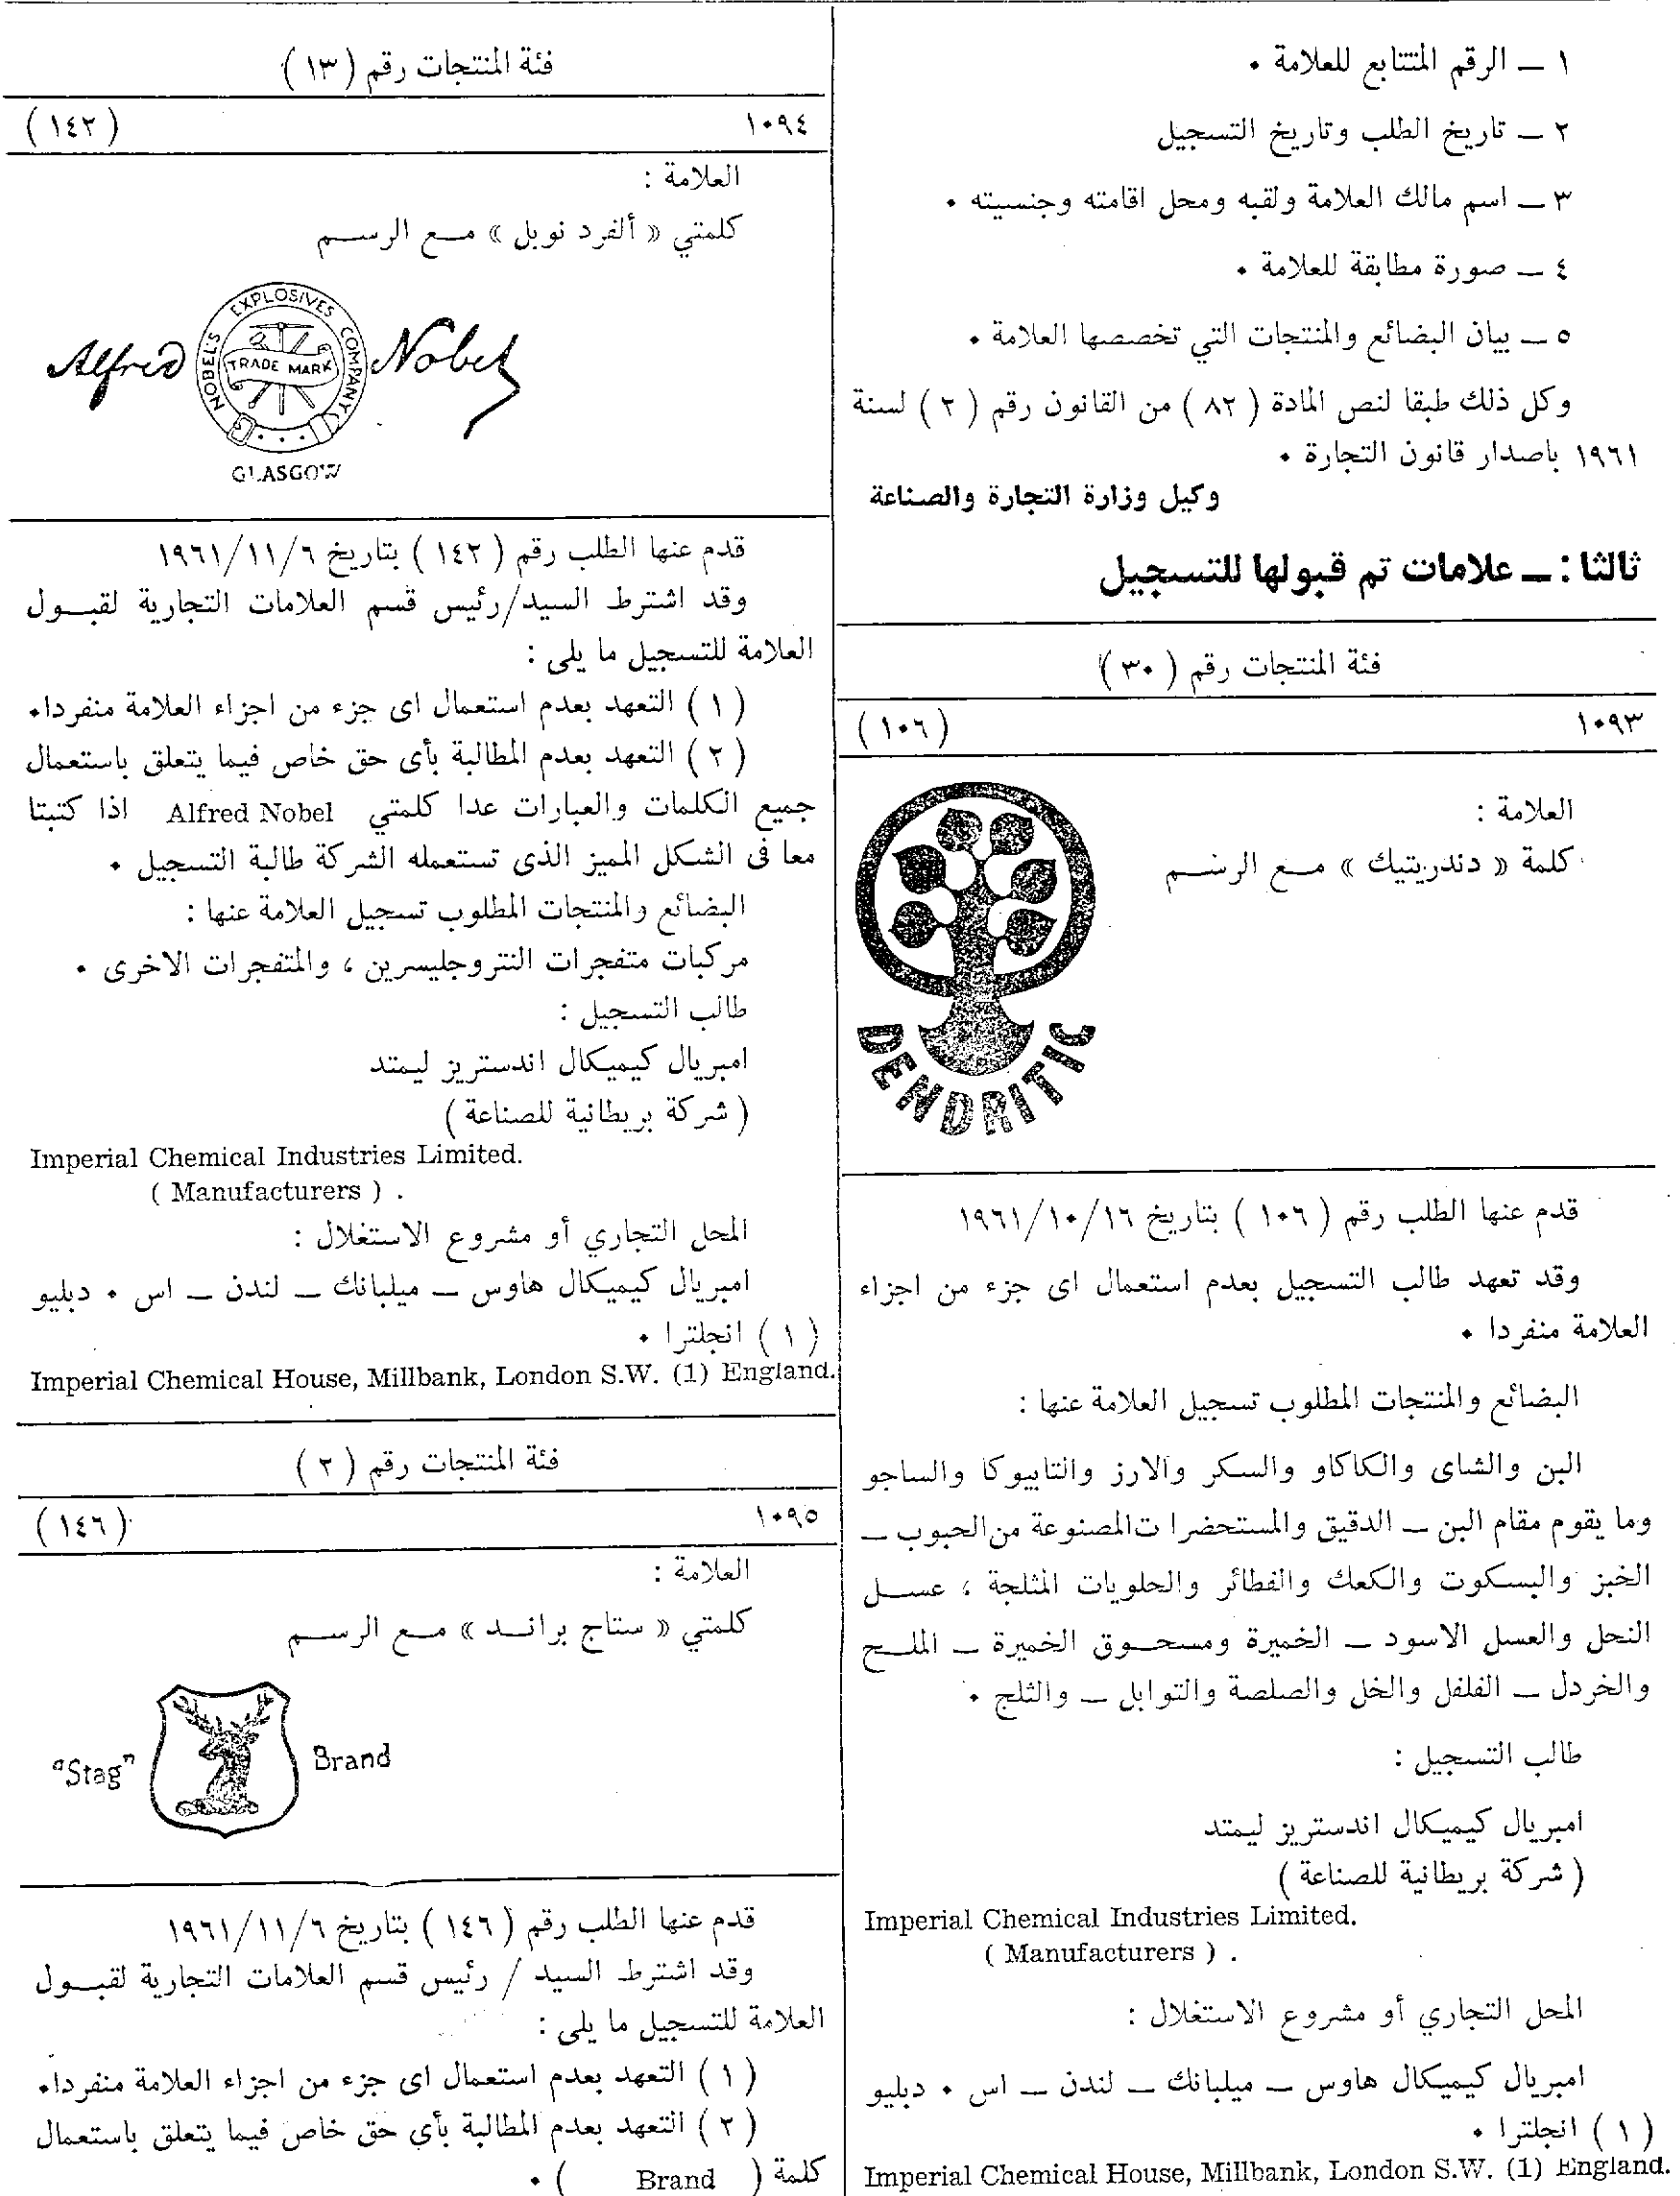 ١ — الرقم المتتابع للعلامة ٠
٢ — تاريخ الطلب وتاريخ التسجيل
٣ — اسم مالك العلامة ولقبه ومحل اقامته وجنسيته ٠
٤ — صورة مطابقة للعلامة ٠
٥ — بيان البضائع والمنتجات التي تخصصها العلامة ٠
وكل ذلك طبقا لنص المادة ( ٨٢ ) من القانون رقم ( ٢ ) لسنة
١٩٦١ باصدار قانون التجارة ٠
وكيل وزارة التجارة والصناعة
ثالثا : — علامات تم قبولها للتسجيل
فئة المنتجات رقم ( ٣٠ )
١٠٩٣ ( ١٠٦ )
العلامة :
كلمة « دندريتيك » مـع الرسـم
DENDRITIC
قدم عنها الطلب رقم ( ١٠٦ ) بتاريخ ١٩٦١/١٠/١٦
وقد تعهد طالب التسجيل بعدم استعمال اى جزء من اجزاء
العلامة منفردا ٠
البضائع والمنتجات المطلوب تسجيل العلامة عنها :
البن والشاى والكاكاو والسكر والارز والتابيوكا والساجو
وما يقوم مقام البن — الدقيق والمستحضرا تالمصنوعة من الحبوب —
الخبز والبسكوت والكعك والفطائر والحلويات المثلجة ، عسـل
النحل والعسل الاسود — الخميرة ومسحـوق الخميرة — الملـح
والخردل — الفلفل والخل والصلصة والتوابل — والثلج ٠
طالب التسجيل :
امبريال كيميكال اندستريز ليمتد
( شركة بريطانية للصناعة )
Imperial Chemical Industries Limited.
( Manufacturers ) .
المحل التجاري أو مشروع الاستغلال :
امبريال كيميكال هاوس — ميلبانك — لندن — اس ٠ دبليو
( ١ ) انجلترا ٠
Imperial Chemical House, Millbank, London S.W. (1) England.
فئة المنتجات رقم ( ١٣ )
١٠٩٤ ( ١٤٢ )
العلامة :
كلمتي « ألفرد نوبل » مـع الرسـم
Alfred Nobel
NOBELS EXPLOSIVES COMPANY
TRADE MARK
GLASGOW
قدم عنها الطلب رقم ( ١٤٢ ) بتاريخ ١٩٦١/١١/٦
وقد اشترط السيد/رئيس قسم العلامات التجارية لقبـول
العلامة للتسجيل ما يلى :
( ١ ) التعهد بعدم استعمال اى جزء من اجزاء العلامة منفردا٠
( ٢ ) التعهد بعدم المطالبة بأى حق خاص فيما يتعلق باستعمال
جميع الكلمات والعبارات عدا كلمتي Alfred Nobel اذا كتبتا
معا فى الشكل المميز الذى تستعمله الشركة طالبة التسجيل ٠
البضائع والمنتجات المطلوب تسجيل العلامة عنها :
مركبات متفجرات النتروجليسرين ، والمتفجرات الاخرى ٠
طالب التسجيل :
امبريال كيميكال اندستريز ليمتد
( شركة بريطانية للصناعة )
Imperial Chemical Industries Limited.
( Manufacturers ) .
المحل التجاري أو مشروع الاستغلال :
امبريال كيميكال هاوس — ميلبانك — لندن — اس ٠ دبليو
( ١ ) انجلترا ٠
Imperial Chemical House, Millbank, London S.W. (1) England.
فئة المنتجات رقم ( ٢ )
١٠٩٥ ( ١٤٦ )
العلامة :
كلمتي « ستاج برانـد » مـع الرسـم
"Stag" Brand
قدم عنها الطلب رقم ( ١٤٦ ) بتاريخ ١٩٦١/١١/٦
وقد اشترط السيد / رئيس قسم العلامات التجارية لقبـول
العلامة للتسجيل ما يلى :
( ١ ) التعهد بعدم استعمال اى جزء من اجزاء العلامة منفردا٠
( ٢ ) التعهد بعدم المطالبة بأي حق خاص فيما يتعلق باستعمال
كلمة ( Brand ) ٠